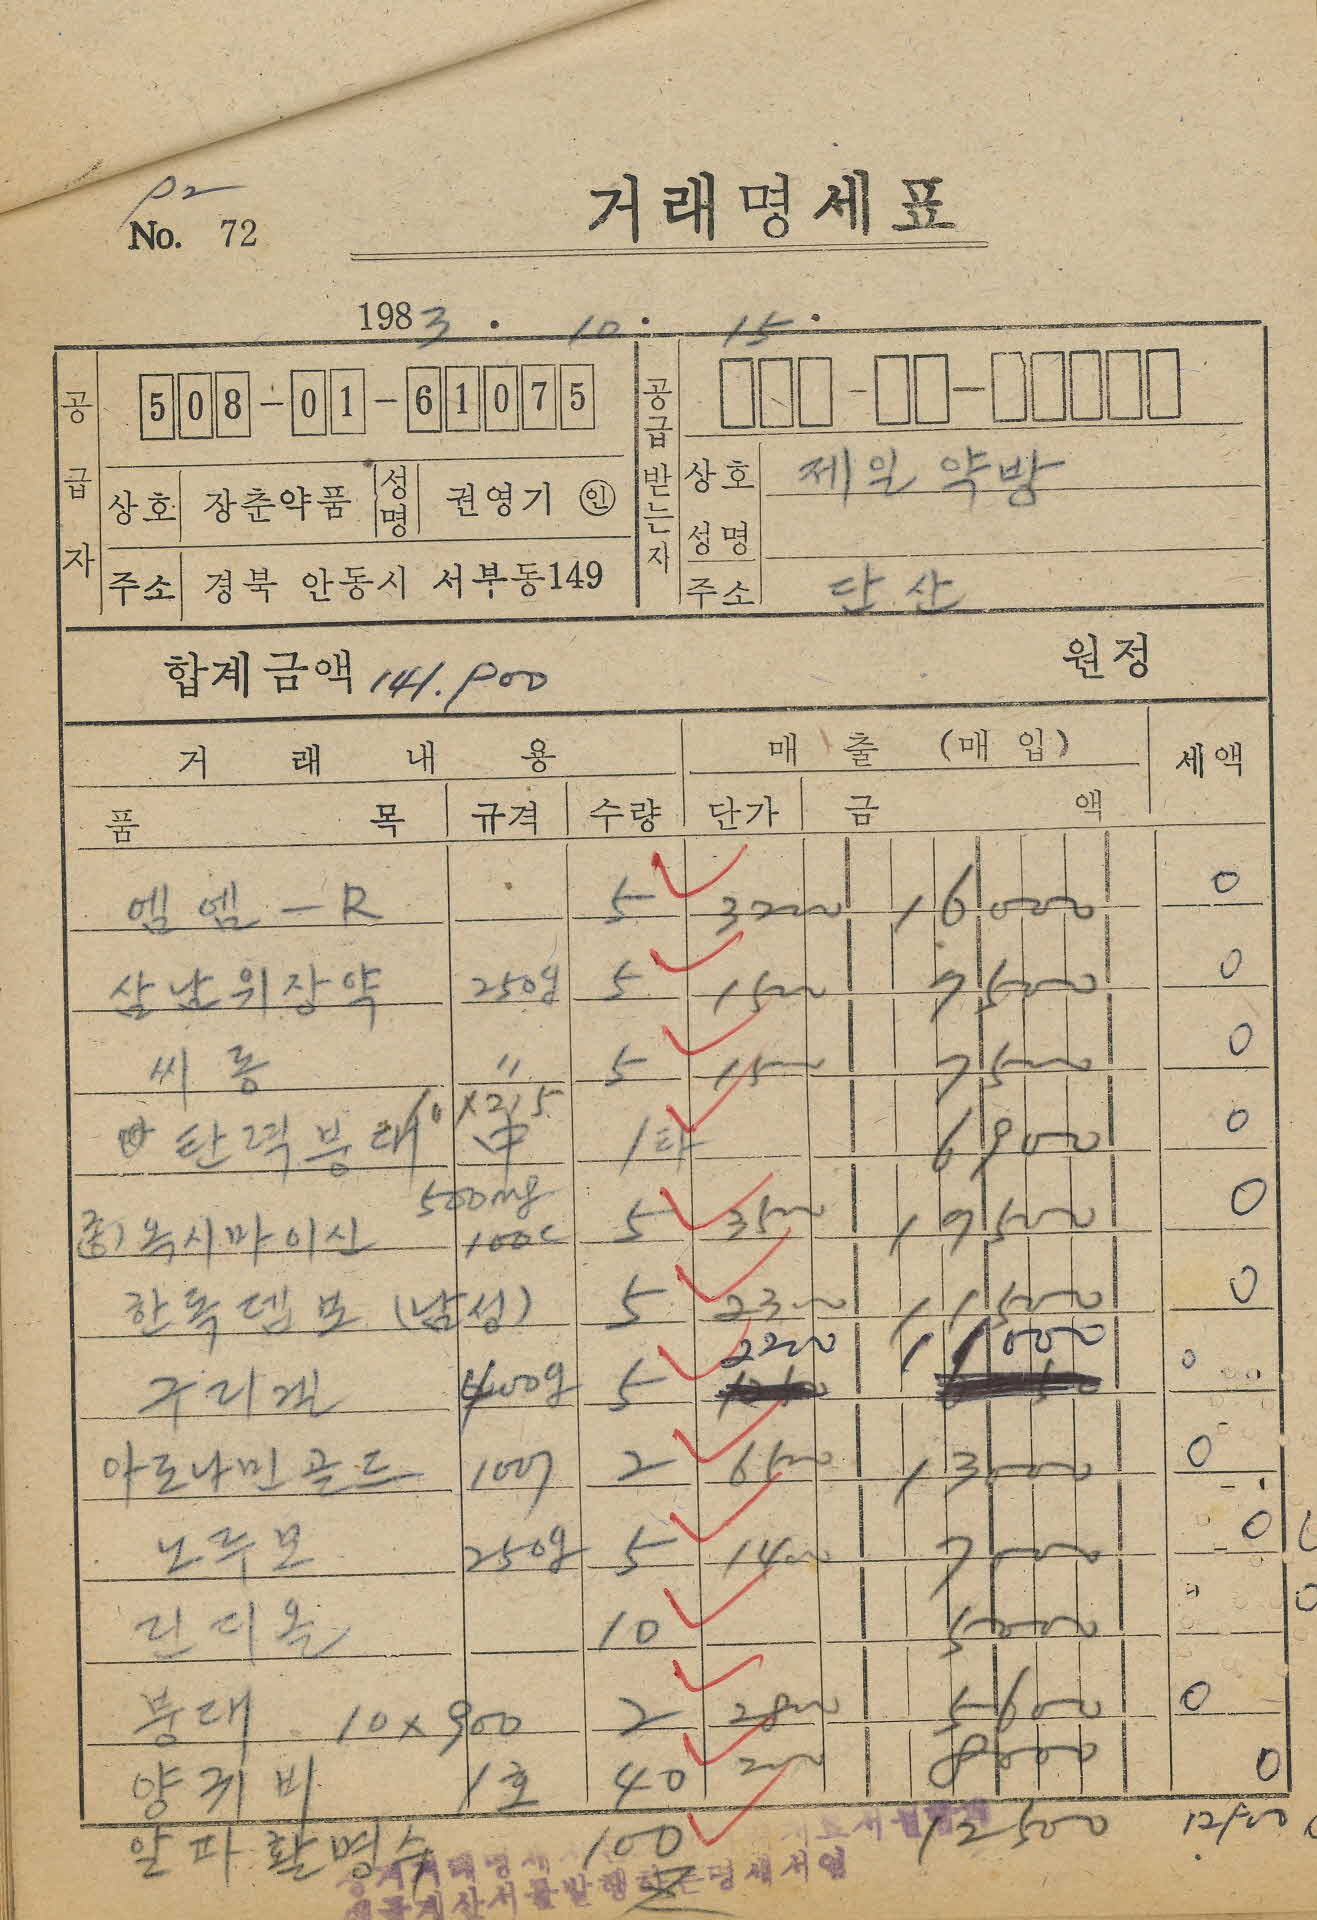 P2
No. 72 거래명세표
1983. 10. 15.
공급자 508-01-61075
상호 장춘약품 성명 권영기 인
주소 경북 안동시 서부동149
공급받는자
상호 제일약방
성명
주소 단산
합계금액 141.900 원정
거래내용 매출 (매입) 세액
품목 규격 수량 단가 금액
엠엠-R 5 3200 16000 0
삼남위장약 250g 5 1500 7500 0
씨롱 〃 5 1500 7500 0
탄력붕대 6 x 2.5 中 1타 6900 0
옥시마이신 500mg 100c 5 3500 17500 0
한독뎁포 (남성) 5 2300 11500 0
구리겐 400g 5 2200 11000 0
아로나민골드 100T 2 6500 13000 0
노루모 250g 5 1400 7000 0
린디올 10 5000
붕대 10 x 900 2 2800 5600 0
양귀비 1호 40 200 8000 0
알파활명수 100 12500 12500